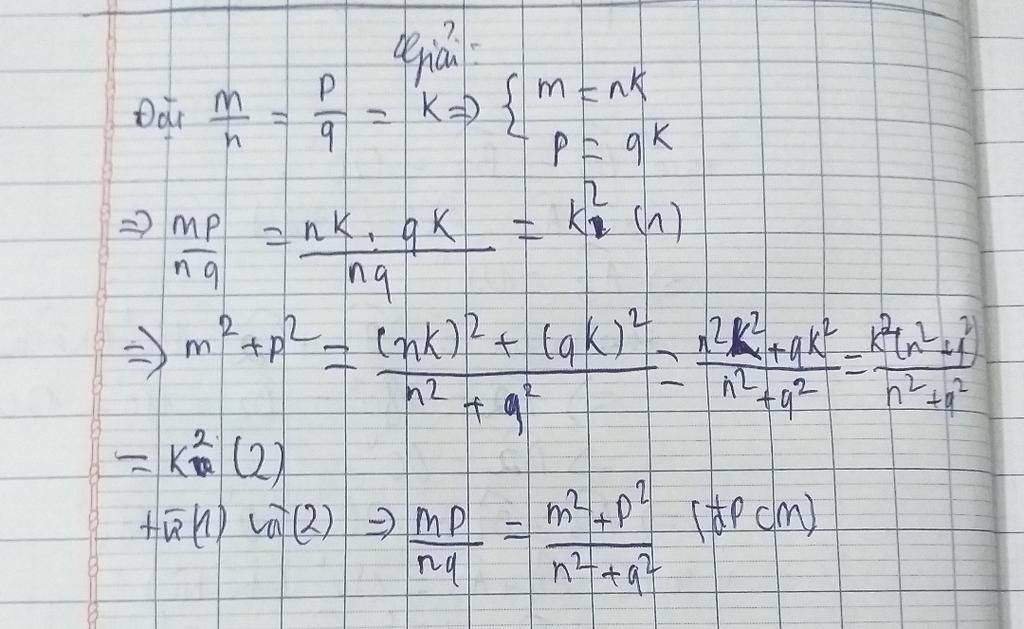 Giải:
Đặt m/n = p/q = k ⇒ { m = nk
p = qk
⇒ mp/nq = nk . qk/nq = k² (1)
⇒ m² + p² = (nk)² + (qk)²/n² + q² = n²k² + qk²/n² + q² = k²(n² + q²)/n² + q²
= k² (2)
từ (1) và (2) ⇒ mp/nq = m² + p²/n² + q² (đpcm)